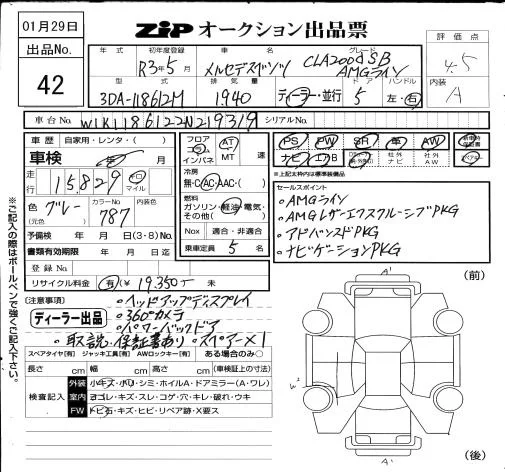 01月29日
出品No.
42
ZIP オークション出品票
評価点
4.5
内装
A
年式 初年度登録 車名 グレード
R3年5月 メルセデスベンツ CLA200d SB AMGライン
型式 排気量 ドア ハンドル
3DA-118612M 1940 ディーラー・並行 5 左・右
車台No. W1K1186122N219319 シリアルNo.
車歴 自家用・レンタ・( )
車検 年 月
走行 15,829 キロ マイル
色 グレー (元色) カラーNo. 787 内装色
予備検 年 月 日(3・8)No.
書類有効期限 年 月 日迄
登録No.
リサイクル料金 有(¥ 19,350 ー)・未
フロア エコ インパネ AT MT 速
冷房 無・C・AC・AAC・( )
燃料 ガソリン・軽油・電気・その他( )
Nox 適合・非適合
乗車定員 5 名
PS PW SR 革 AW 新車時保証書
ナビ エアB 社外ナビ 社外AW
※上記太枠内は標準装備品
セールスポイント
・AMGライン
・AMGレザーエクスクルーシブPKG
・アドバンスドPKG
・ナビゲーションPKG
(注意事項)
ディーラー出品
・ヘッドアップディスプレイ
・360°カメラ
・パワーバックドア
・取説・保証書あり・スペアー×1
スペアタイヤ[有] ジャッキ工具[有] AWロックキー[有] ある場合のみ○
長さ cm 幅 cm 高さ cm (車検証上の寸法)
検査記入
外装 小キズ・小凹・シミ・ホイルA・ドアミラー(A・ワレ)
室内 ヨゴレ・キズ・スレ・コゲ・穴・キレ・破れ・ウキ
FW トビ石・キズ・ヒビ・リペア跡・X要ス
※ご記入の際はボールペンで強くご記入下さい。
(前)
A'
W2
A'
(後)